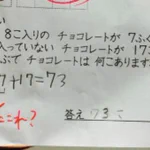 8こ入りの チョコレートが 7ふく
入っていない チョコレートが 17こ
ぶで チョコレートは 何こありますか
7+17=73
これ?
答え 73こ